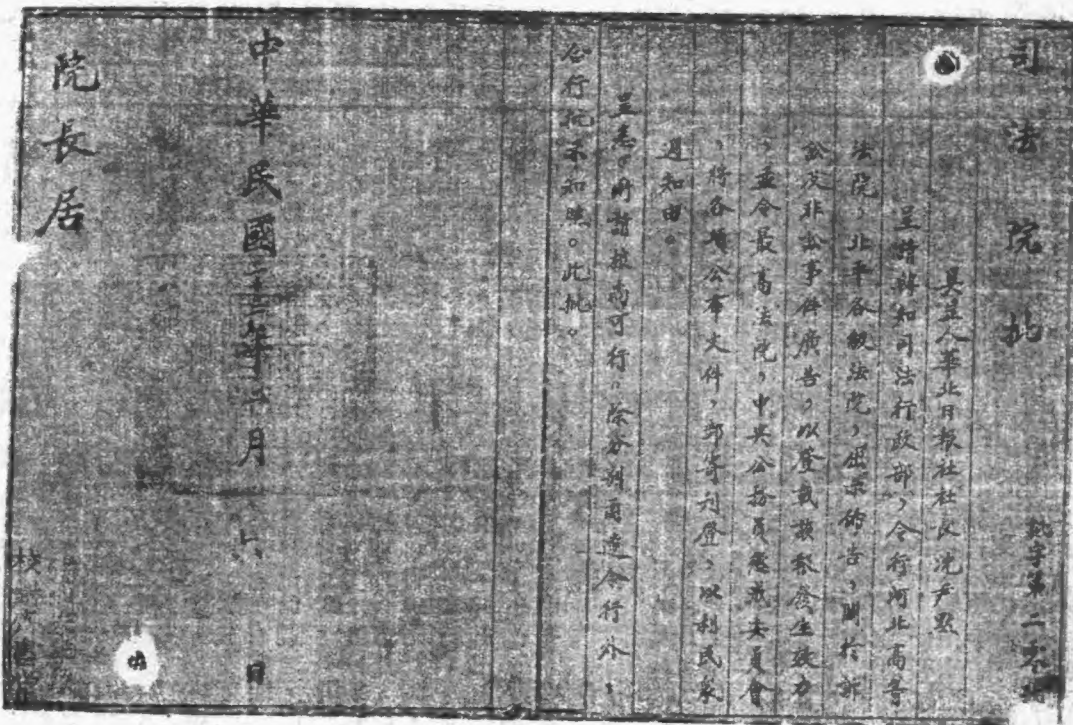 司法院批
批字第二
具呈人華北日報社社長沈
呈請轉知司法行政部，令行河北高等
法院，北平各級法院，佈告，關於訴
訟及非訟事件廣告，以登載該報發生效力
，並令最高法院，中央公務員懲戒委員會
，將各項公布文件，郵寄刊登，以利民衆
週知由。
呈悉。所請核尚可行，除分別函達令行外，
合行批示知照。此批。
中華民國二十三年 月六日
院長居
校對